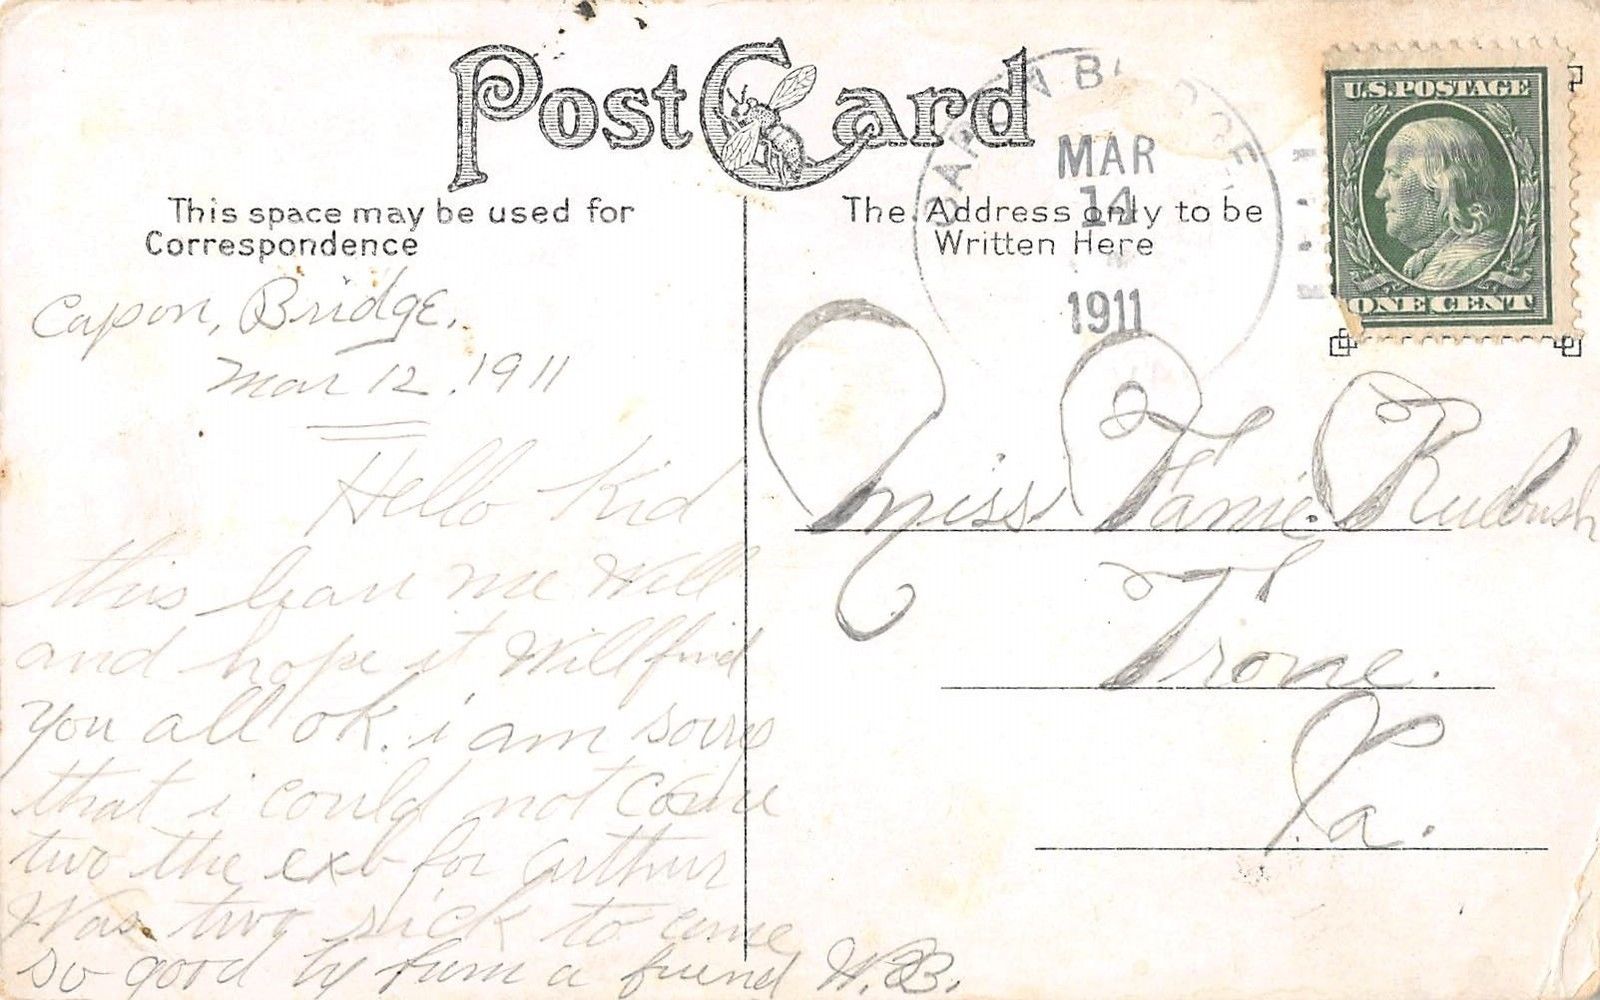 Post Card
This space may be used for
Correspondence
The Address only to be
Written Here
CAPON BRIDGE
MAR
14
1911
U.S. POSTAGE
ONE CENT
Capon, Bridge.
Mar 12, 1911
Hello Kid
this leave me Will
and hope it Will find
You all ok. i am sorry
that i could not come
two the exb for Arthur
Was two sick to come
so good by from a friend W.B.
Miss Fanie Rudbush
Trone.
Va.